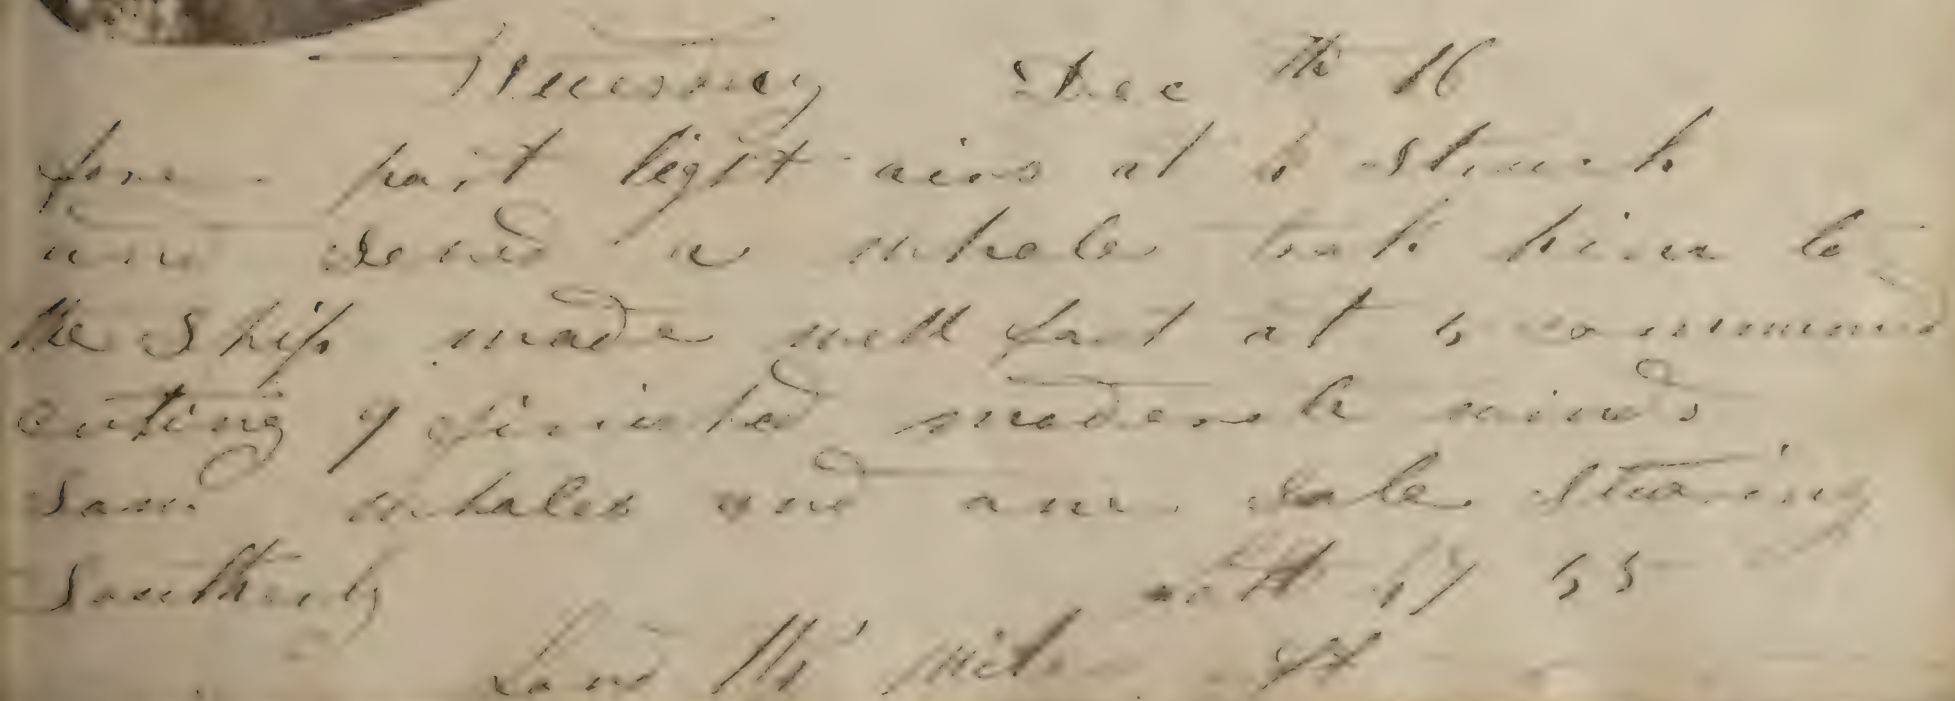 Thursday Dec th 16
fore part light airs at 6 Struck
and Saved a whale took him to
the Ship made well fast at 6 commenced
cuting 9 finished moderate winds
Sand whales and one sale Stearing
Southerly Latt 17 55